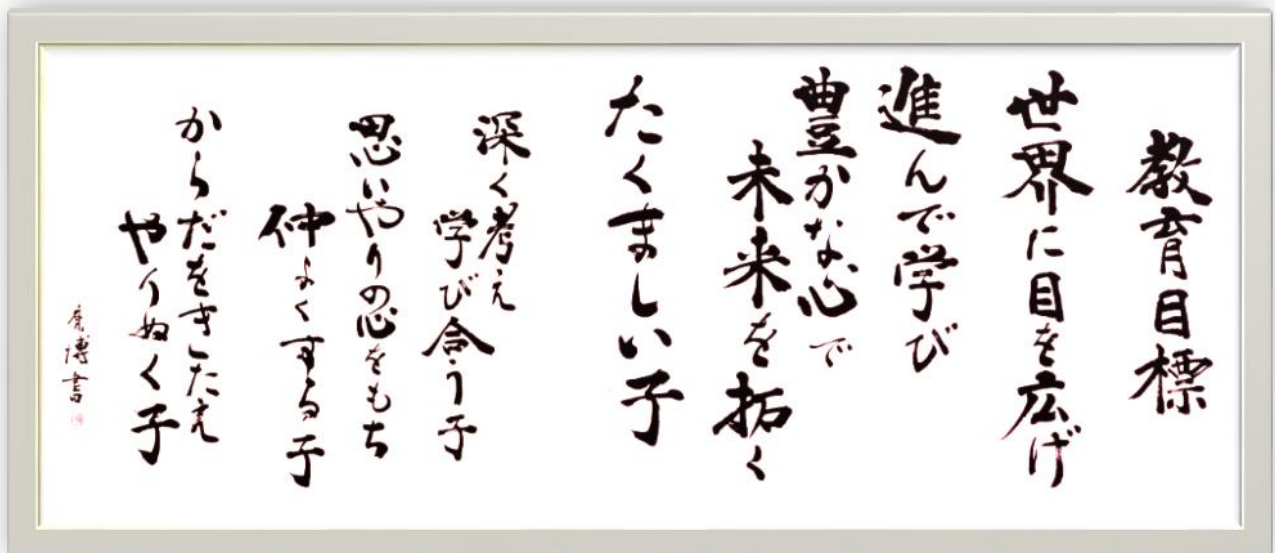 教育目標
世界に目を広げ
進んで学び
豊かな心で
未来を拓く
たくましい子
深く考え
学び合う子
思いやりの心をもち
仲よくする子
からだをきたえ
やりぬく子
博書